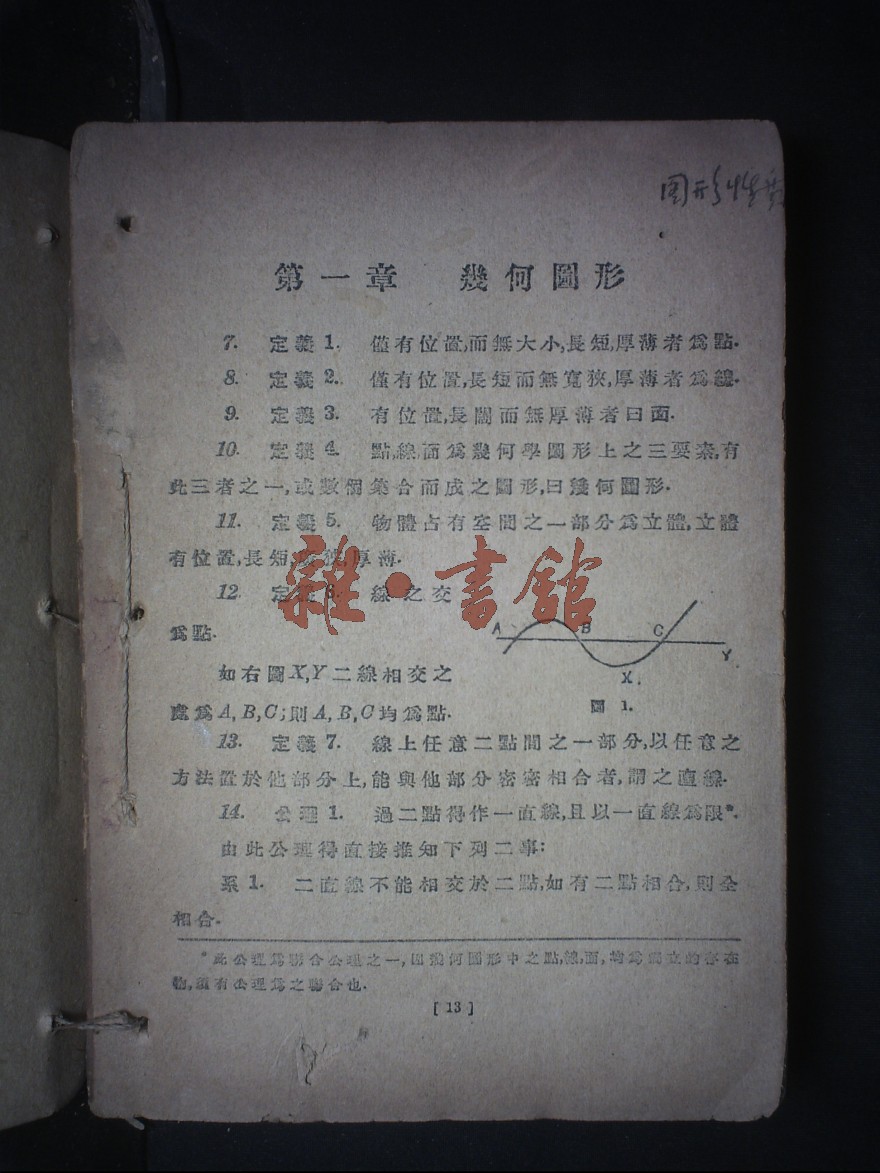 图形性質
第一章 幾何圖形
7. 定義1. 僅有位置,而無大小,長短,厚薄者爲點.
8. 定義2. 僅有位置,長短而無寬狹,厚薄者爲線.
9. 定義3. 有位置,長闊而無厚薄者曰面.
10. 定義4. 點,線,面爲幾何學圖形上之三要素,有
此三者之一,或數個集合而成之圖形,曰幾何圖形.
11. 定義5. 物體占有空間之一部分爲立體,立體
有位置,長短,狹,厚薄.
雜·書館
12. 定義6. 線之交
爲點.
A B C
Y
X
如右圖X,Y二線相交之
處爲A,B,C;則A,B,C均爲點.
圖 1.
13. 定義7. 線上任意二點間之一部分,以任意之
方法置於他部分上,能與他部分密密相合者,謂之直線.
14. 公理1. 過二點得作一直線,且以一直線爲限*.
由此公理得直接推知下列二事:
系1. 二直線不能相交於二點,如有二點相合,則全
相合.
*此公理爲聯合公理之一,因幾何圖形中之點,線,面,均爲獨立的存在
物,須有公理爲之聯合也.
[13]